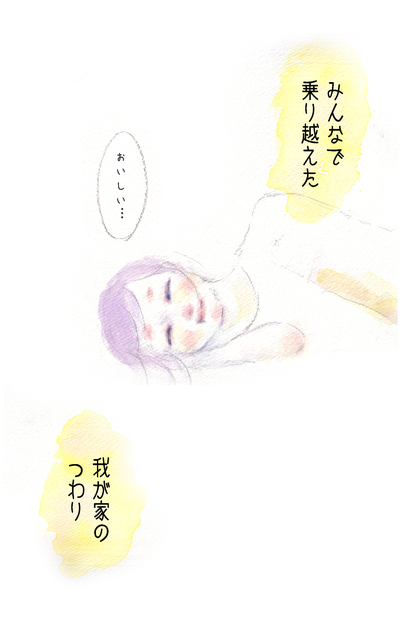 みんなで
乗り越えた
おいしい…
我が家の
つわり